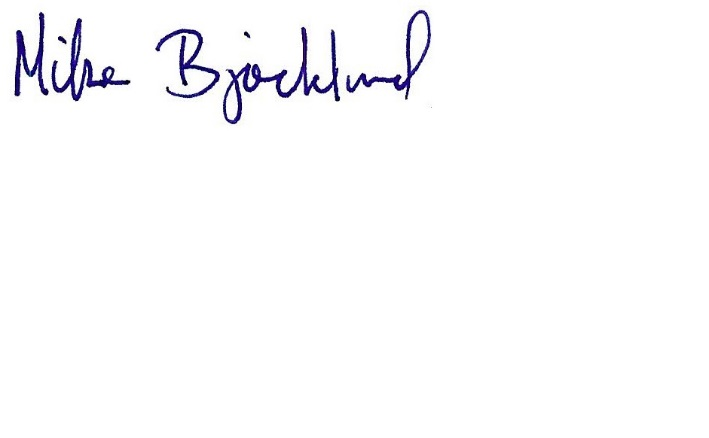 Mike Bjorklund